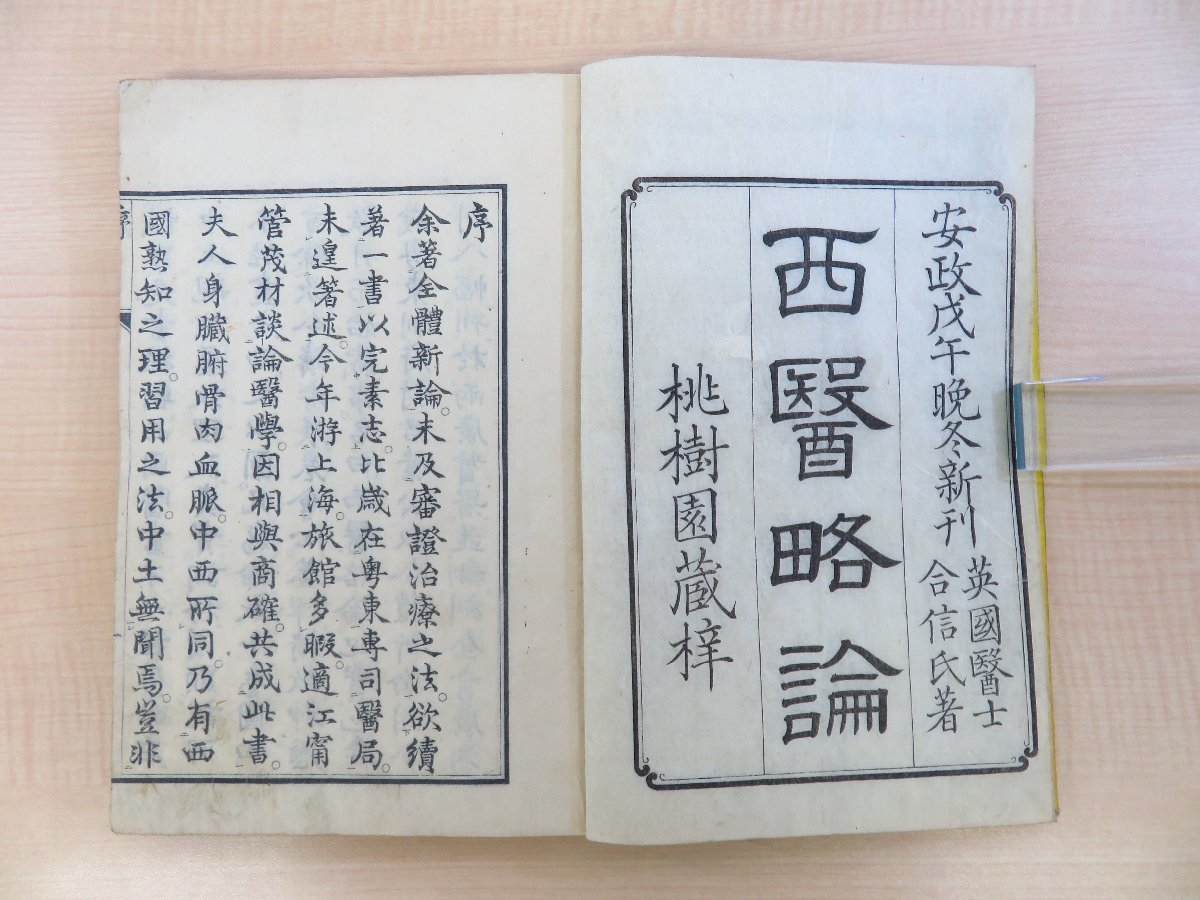 安政戊午晩冬新刊
英國醫士
合信氏著
西醫略論
桃樹園蔵梓
序
余著全體新論。未及審證治療之法。欲續
著一書以完素志。比歳在粤東專司醫局。
未遑箸述。今年游上海。旅館多暇。適江甯
管茂材談論醫學。因相與商確。共成此書。
夫人身臓腑骨肉血脈。中西所同。乃有西
國熟知之理。習用之法。中土無聞焉。豈非
序